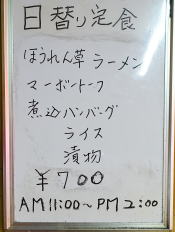 日替り定食
ほうれん草ラーメン
マーボートーフ
煮込ハンバーグ
ライス
漬物
¥700
AM11:00~PM2:00